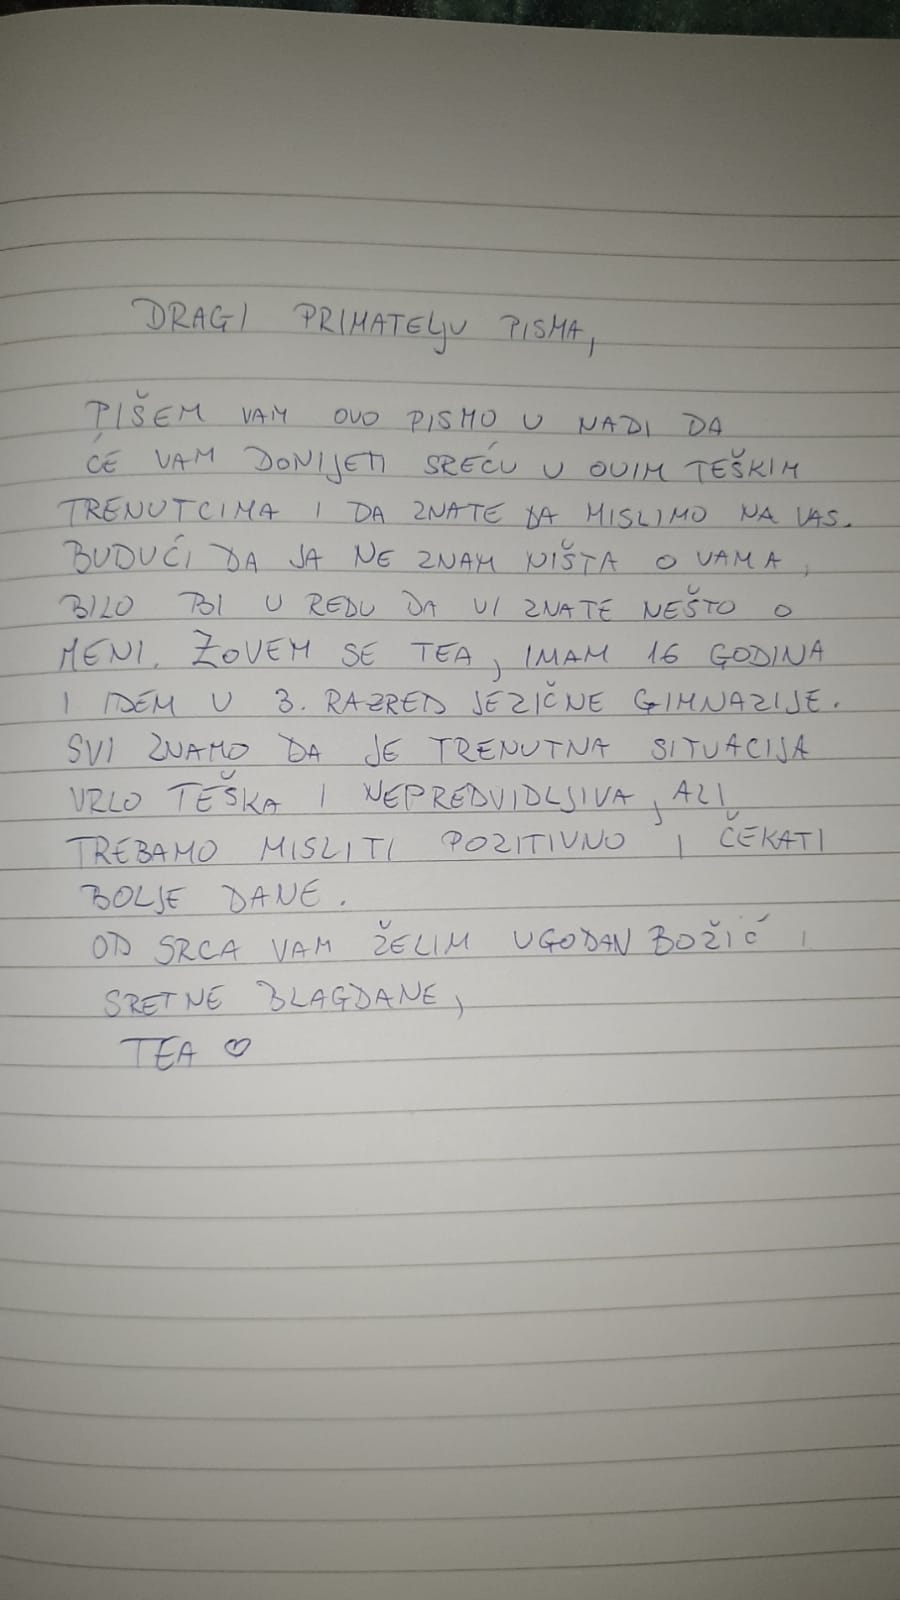 DRAGI PRIMATELJU PISMA,
PIŠEM VAM OVO PISMO U NADI DA
ĆE VAM DONIJETI SREĆU U OVIM TEŠKIM
TRENUTCIMA I DA ZNATE DA MISLIMO NA VAS.
BUDUĆI DA JA NE ZNAM NIŠTA O VAMA,
BILO BI U REDU DA VI ZNATE NEŠTO O
MENI. ZOVEM SE TEA, IMAM 16 GODINA
I IDEM U 3. RAZRED JEZIČNE GIMNAZIJE.
SVI ZNAMO DA JE TRENUTNA SITUACIJA
VRLO TEŠKA I NEPREDVIDLJIVA, ALI
TREBAMO MISLITI POZITIVNO I ČEKATI
BOLJE DANE.
OD SRCA VAM ŽELIM UGODAN BOŽIĆ I
SRETNE BLAGDANE,
TEA ♡